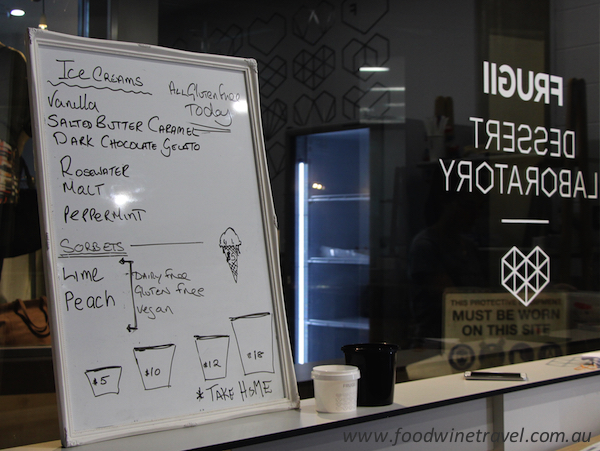 Ice Creams
All Gluten Free
Today
Vanilla
Salted Butter Caramel
Dark Chocolate Gelato
Rosewater
Malt
Peppermint
Sorbets
Lime
Peach
Dairy free
Gluten free
vegan
$5
$10
$12
$18
* Take Home
FRUGII
DESSERT
LABORATORY
THIS PROTECTIVE EQUIPMENT
MUST BE WORN
ON THIS SITE
www.foodwinetravel.com.au